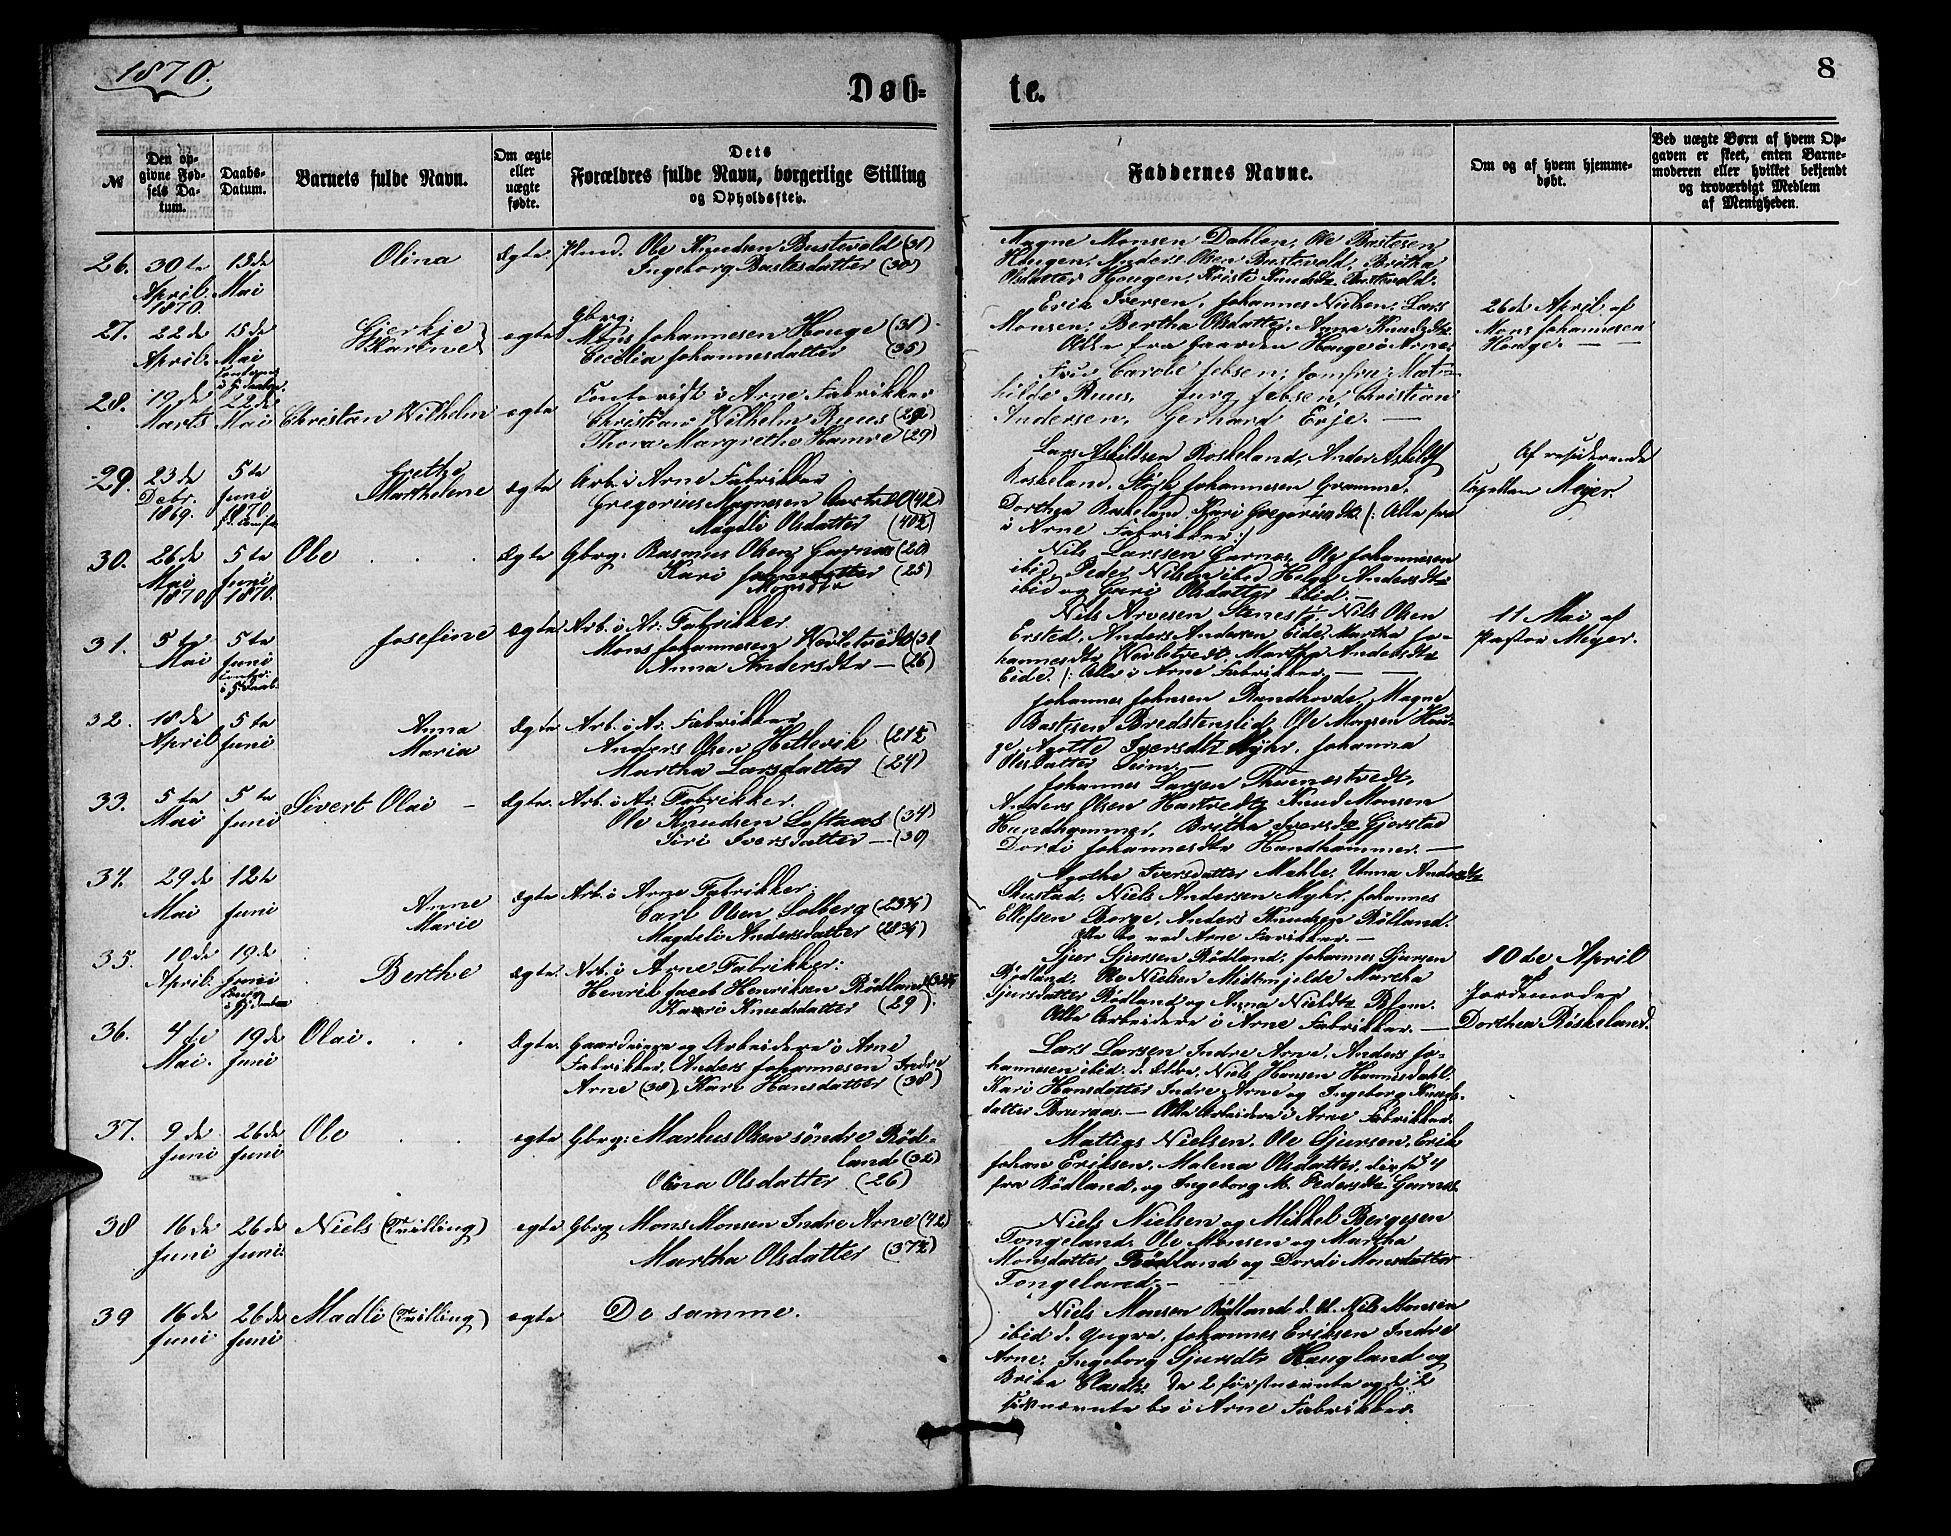 1870.
8
Døb-
te.
№
Den opgivne Fødsels Datum.
Daabs-Datum.
Barnets fulde Navn.
Om ægte eller uægte fødte.
Dets Forældres fulde Navn, borgerlige Stilling og Opholdssted.
Faddernes Navne.
Om og af hvem hjemmedøbt.
Ved uægte Børn af hvem Opgaven er skeet, enten Barnemoderen eller hvilket bekjendt og troværdigt Medlem af Menigheden.
26. 30te April 1870. 15de Mai Olina Egte Plmd. Ole Knudsen Bustevold (31)
Ingeborg Bastesdatter (30)
Magne Monsen Dahlen, Ole Bastesen
Hougen, Anders Olsen Bustevold, Britha
Olsdatter Hougen, Kristi Knudsdtr Bustevold.
27. 22de April. 15de Mai Gjertje Karine egte Gbrg: Mons Johannesen Houge (31)
Cecelia Johannesdatter (35)
Erik Iversen, Johannes Nielsen, Lars
Monsen, Bertha Olsdatter, Anna Knudsdtr
Alle fra Gaarden Houge i Arne.
26de April af
Mons Johannesen
Houge.
28. 19de Marts 22de Mai Christian Wilhelm egte Contorist i Arne Fabrikker
Christian Wilhelm Ruus (29)
Thora Margrethe Hamre (29)
Fru Carole Jebsen, Jomfru Mat-
hilde Ruus, Jurg Jebsen, Christian
Andersen, Gerhard Erje.
29. 23de Debr. 1869. 5te Juni 1870 Grethe Marthelene egte Arb. i Arne Fabrikker
Gregorius Magnesen (42)
Magdli Olsdatter (40½)
Lars Askildsen Roskeland, Anders
Roskeland, Johannesen Gramme,
Dorthea Roskeland, Kari /: Alle fra
i Arne Fabrikker:/
Af residerende
Capellan Meyer.
30. 26de Mai 1870 5te Juni 1870. Ole Egte Gbrg: Rasmus Olsen Garnæs (20)
Kari (25)
Monsdtr
Nils Larssen Garnæs, Ole Johannesen
ibid, Peder Nilsen ibid Andersdtr
ibid og Olsdatter ibid.
31. 5te Mai 5te Juni Josefine egte Arb. i Ar. Fabrikker.
Mons Johannesen (31
Anna Andersdtr (26)
Nils Arvesen, Nils Olsen
Ersted, Anders Andersen Eide, Martha Jo-
hannesdtr, Martha Andersdtr
Eide. /: Alle i Arne Fabrikker.
11 Mai af
Pastor Meyer.
32. 18de April 5te Juni Anna Maria Egte Arb. i Ar. Fabrikker
Anders Olsen Hettevik (21½
Martha Larsdatter (24)
Johannes Johnsen Randhovde, Magne
Bastesen Bredstenslid, Ole Monsen Hou-
ge, Agotte Iversdtr Myhr, Johanna
Olsdatter Seim.
33. 5te Mai 5te Juni Sivert Olai Egte. Arb. i Ar. Fabrikker.
Ole Knudsen Loftaas (34)
Siri Iversdatter (39)
Johannes Larsen Thunestvedt,
Anders Olsen Hartvedt, Knud Monsen
Hundhammer, Britha Iversdtr Gjerstad
Dordi Johannesdtr Hundhammer.
34. 29de Mai 12te Juni Anne Marie egte Arb. i Arne Fabrikker:
Carl Olsen Solberg (23¾)
Magdeli Andersdatter (28¾)
Agothe Iversdatter Mehle, Unna Andersdtr
Skustad, Niels Andersen Myhr, Johannes
Ellefsen Borge, Anders Knudsen Rødland.
Alle bo ved Arne Farikker.
35. 10de April. 19de Juni Berthe egte. Arb. i Arne Fabrikker:
Henrik Jacob Henriksen Rødland
Kari Knudsdatter (29)
Sjur Sjursen Rødland, Johannes Sjursen
Rødland, Ole Nielsen Midtmjelde Martha
Sjursdatter Rødland og Anna Nielsdtr Blom.
Alle Arbeidere i Arne Fabrikker.
10de April
af
Jordemoder
Dorthea Röskeland.
36. 4de Mai. 19de Juni Olai. Egte. Gaardeiere og Arbeidere i Arne
Fabrikker, Anders Johannesen Indre
Arne (38), Kari Hansdatter (38)
Lars Larsen Indre Arne, Anders Jo-
hannesen ibid. d. Eldre, Niels Hansen Hannisdahl,
Kari Hansdatter Indre Arne og Ingeborg Knuds-
datter Bruraas. Alle Arbeidere i Arne Fabrikker.
37. 9de Juni 26de Juni Ole egte Gbrg: Markus Olsen söndre Röd-
land (32)
Olina Olsdatter (26)
Mattias Nielsen, Ole Sjursen, Erik
Johan Eriksen, Malena Olsdatter, disse 4
fra Rödland, og Ingeborg M. Pedersdtr Garnæs.
38 16de Juni 26de Juni Niels (Tvilling) egte Gbrg Mons Monsen Indre Arne (42)
Martha Olsdatter (37½)
Niels Nielsen og Mikkel Bergesen
Tongeland, Ole Monsen og Martha
Monsdatter Rödland og Dordi Monsdatter
Tongeland.
39 16de Juni 26de Juni Madli (Tvilling) egte De samme.
Niels Monsen Rödland d. Æ. Nils Monsen
ibid d. Yngre, Johannes Eriksen Indre
Arne, Ingeborg Sjursdtr Haugland og
Brita Olasdtr. De 2 förstnævnte og de 2
sidstnævnte bo i Arne Fabrikker.